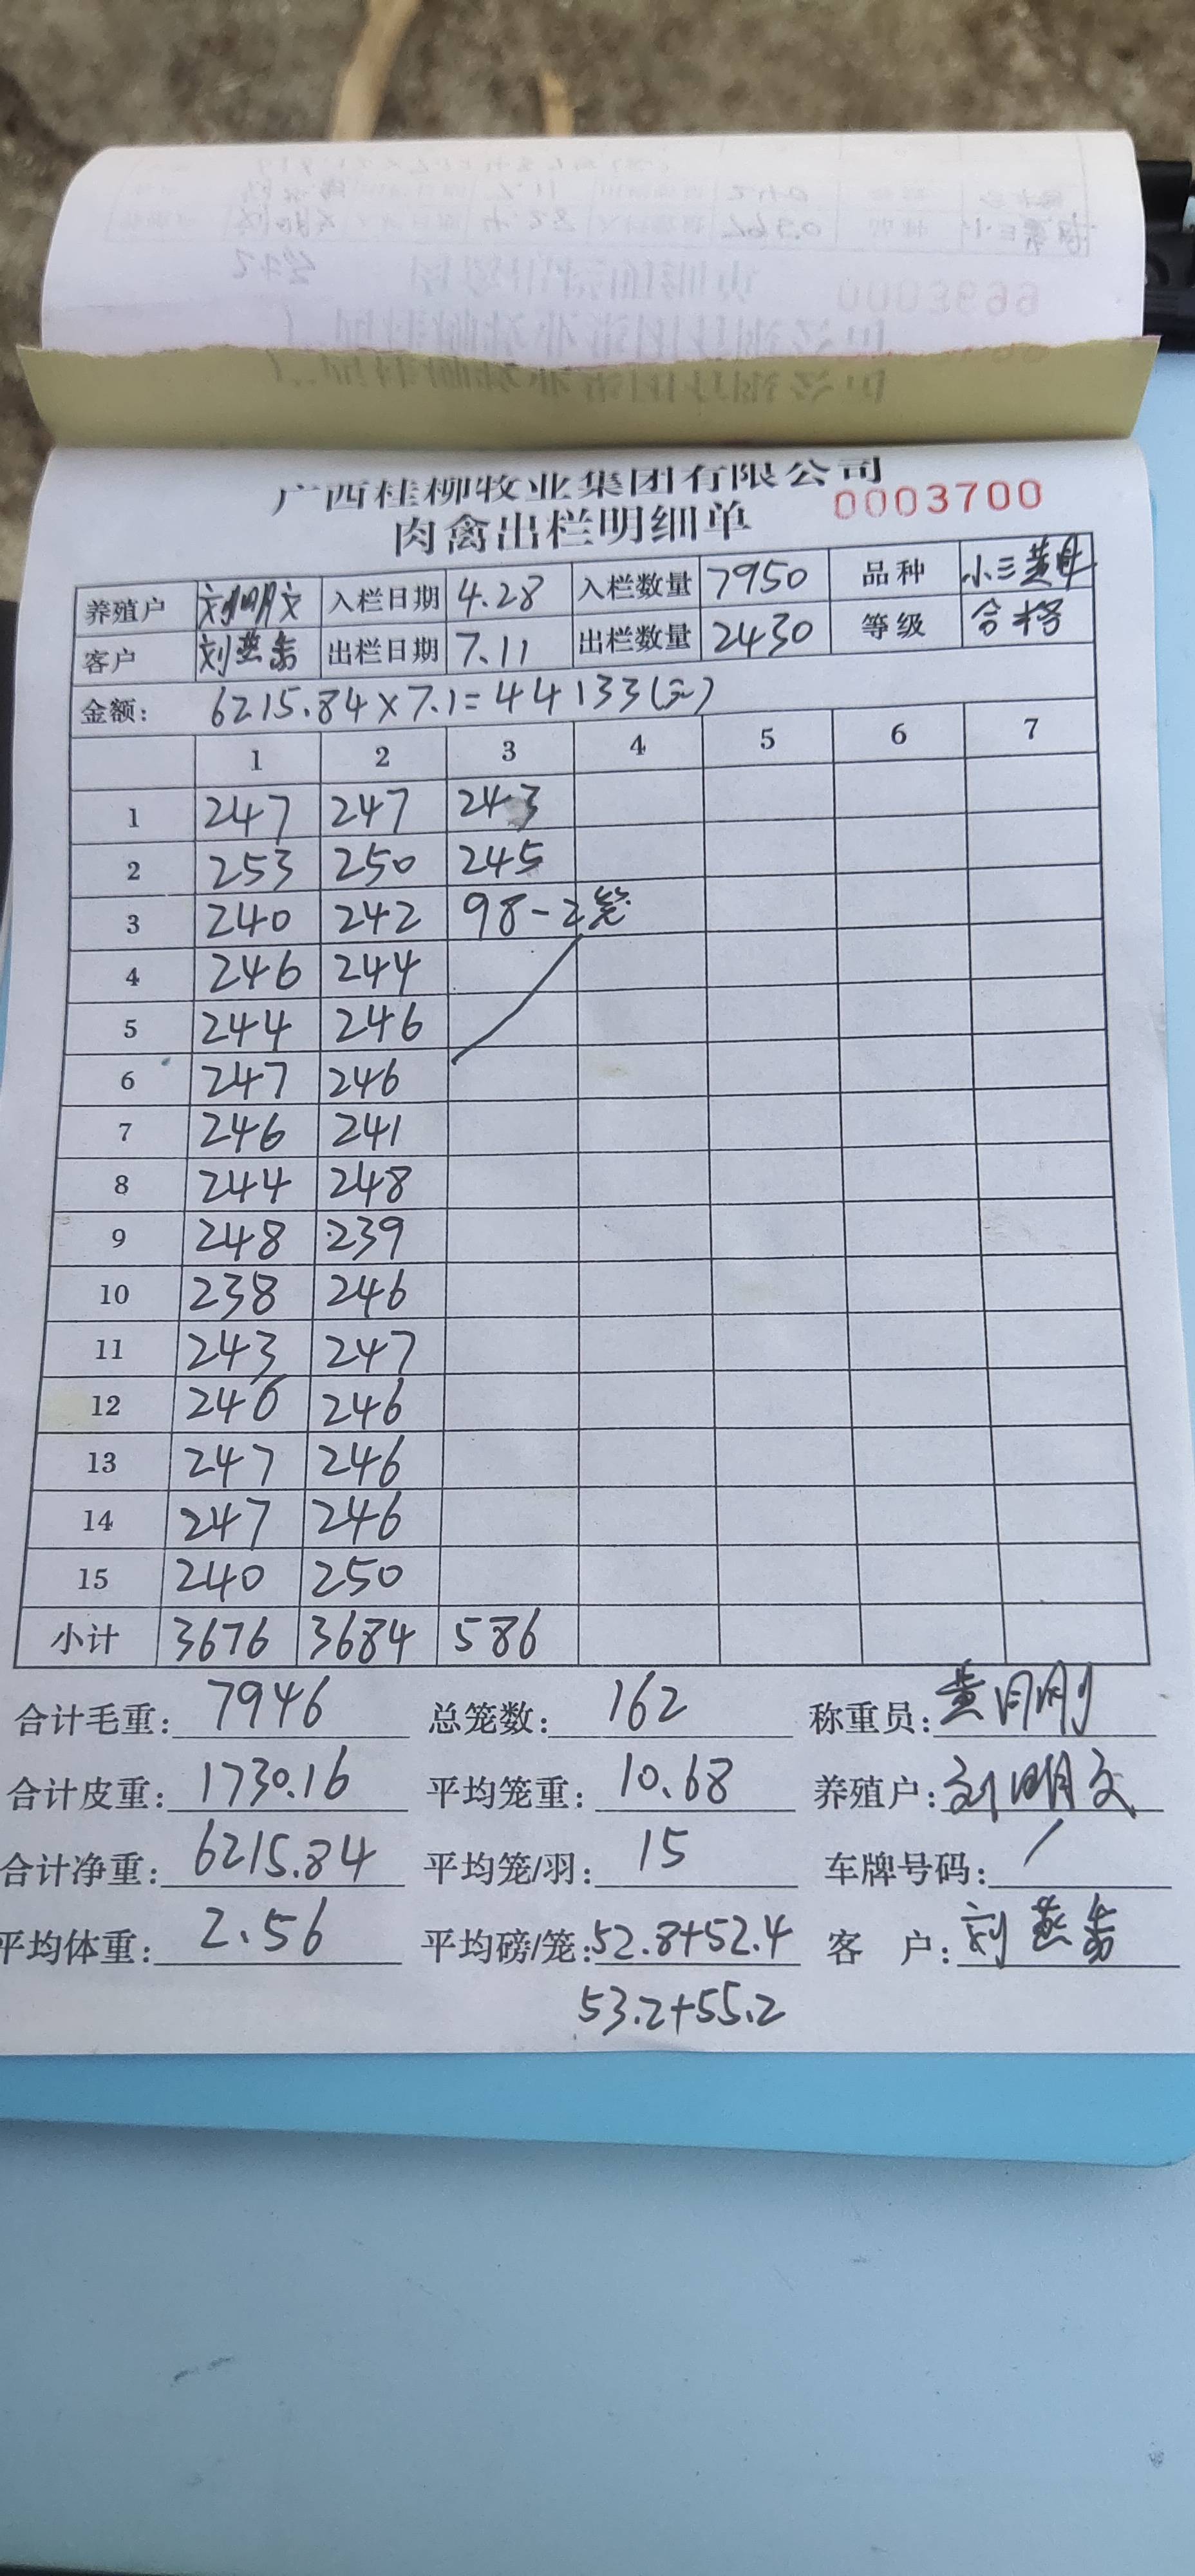 广西桂柳牧业集团有限公司
肉禽出栏明细单 0003700
养殖户 刘明文 入栏日期 4.28 入栏数量 7950 品种 小三黄母
客户 刘燕 出栏日期 7.11 出栏数量 2430 等级 合格
金额: 6215.84×7.1=44133(元)
1 2 3 4 5 6 7
1 247 247 243
2 253 250 245
3 240 242 98-2笼
4 246 244
5 244 246
6 247 246
7 246 241
8 244 248
9 248 239
10 238 246
11 243 247
12 246 246
13 247 246
14 247 246
15 240 250
小计 3676 3684 586
合计毛重: 7946 总笼数: 162 称重员: 黄月刚
合计皮重: 1730.16 平均笼重: 10.68 养殖户: 刘明文
合计净重: 6215.84 平均笼/羽: 15 车牌号码: /
平均体重: 2.56 平均磅/笼: 52.8+52.4 客 户: 刘燕
53.2+55.2